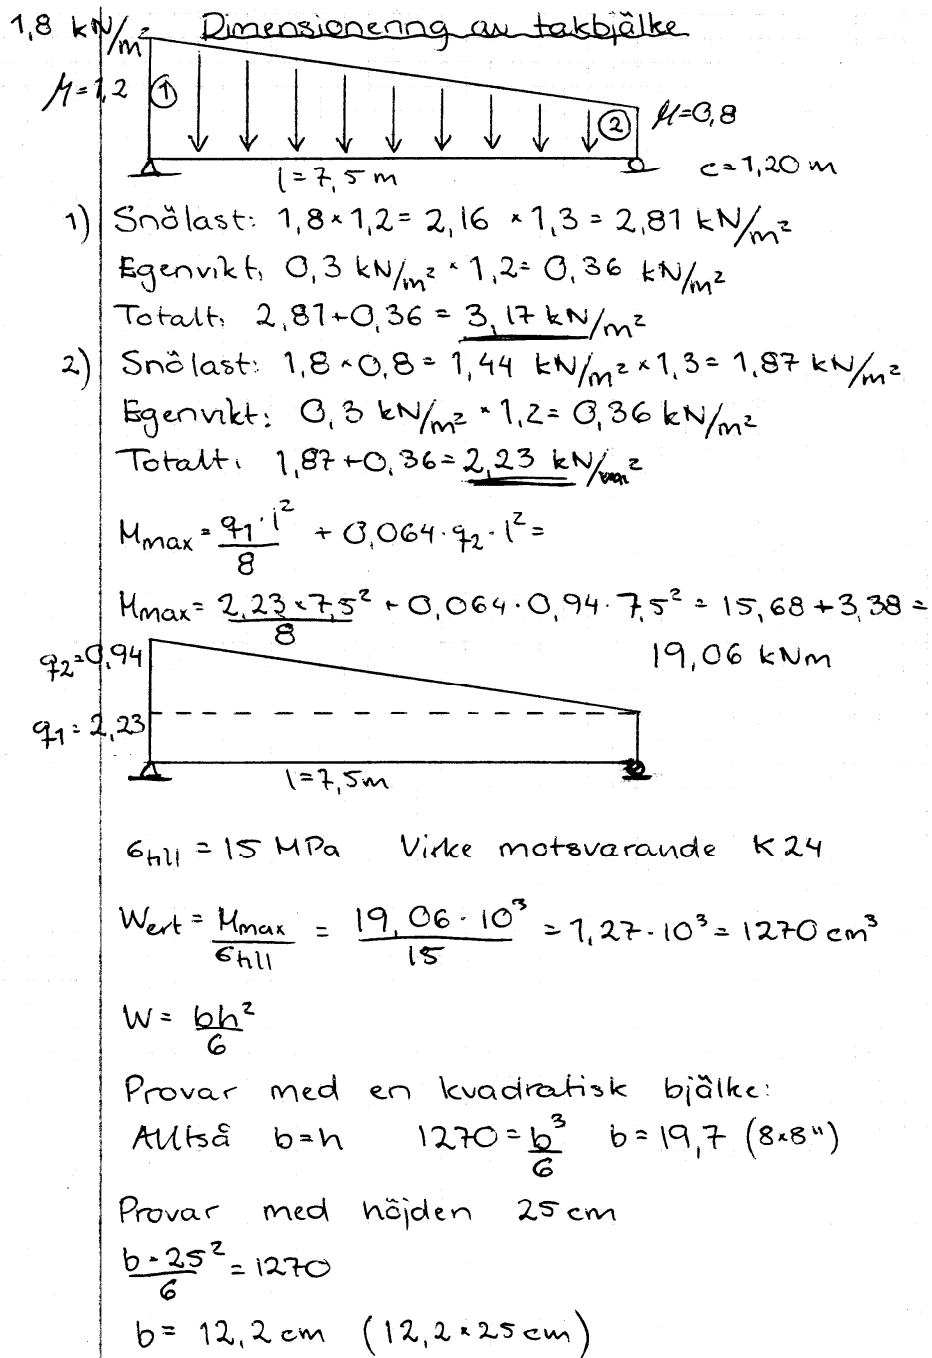 Dimensionering av takbjälke
1,8 kN/m²
μ=1,2 ① ② μ=0,8
l=7,5 m c=1,20 m
1) Snölast: 1,8×1,2= 2,16 ×1,3= 2,81 kN/m²
Egenvikt: 0,3 kN/m² × 1,2= 0,36 kN/m²
Totalt: 2,81+0,36 = 3,17 kN/m²
2) Snölast: 1,8×0,8= 1,44 kN/m² ×1,3= 1,87 kN/m²
Egenvikt: 0,3 kN/m² × 1,2= 0,36 kN/m²
Totalt: 1,87+0,36= 2,23 kN/m²
Mmax = q₁·l²/8 + 0,064·q₂·l² =
Mmax = 2,23×7,5²/8 + 0,064·0,94·7,5² = 15,68+3,38 =
19,06 kNm
q₂=0,94
q₁=2,23
l=7,5m
σtill = 15 MPa Virke motsvarande K24
Wert = Mmax/σtill = 19,06·10³/15 = 1,27·10³ = 1270 cm³
W = bh²/6
Provar med en kvadratisk bjälke:
Alltså b=h 1270 = b³/6 b=19,7 (8×8")
Provar med höjden 25 cm
b·25²/6 = 1270
b= 12,2 cm (12,2×25 cm)